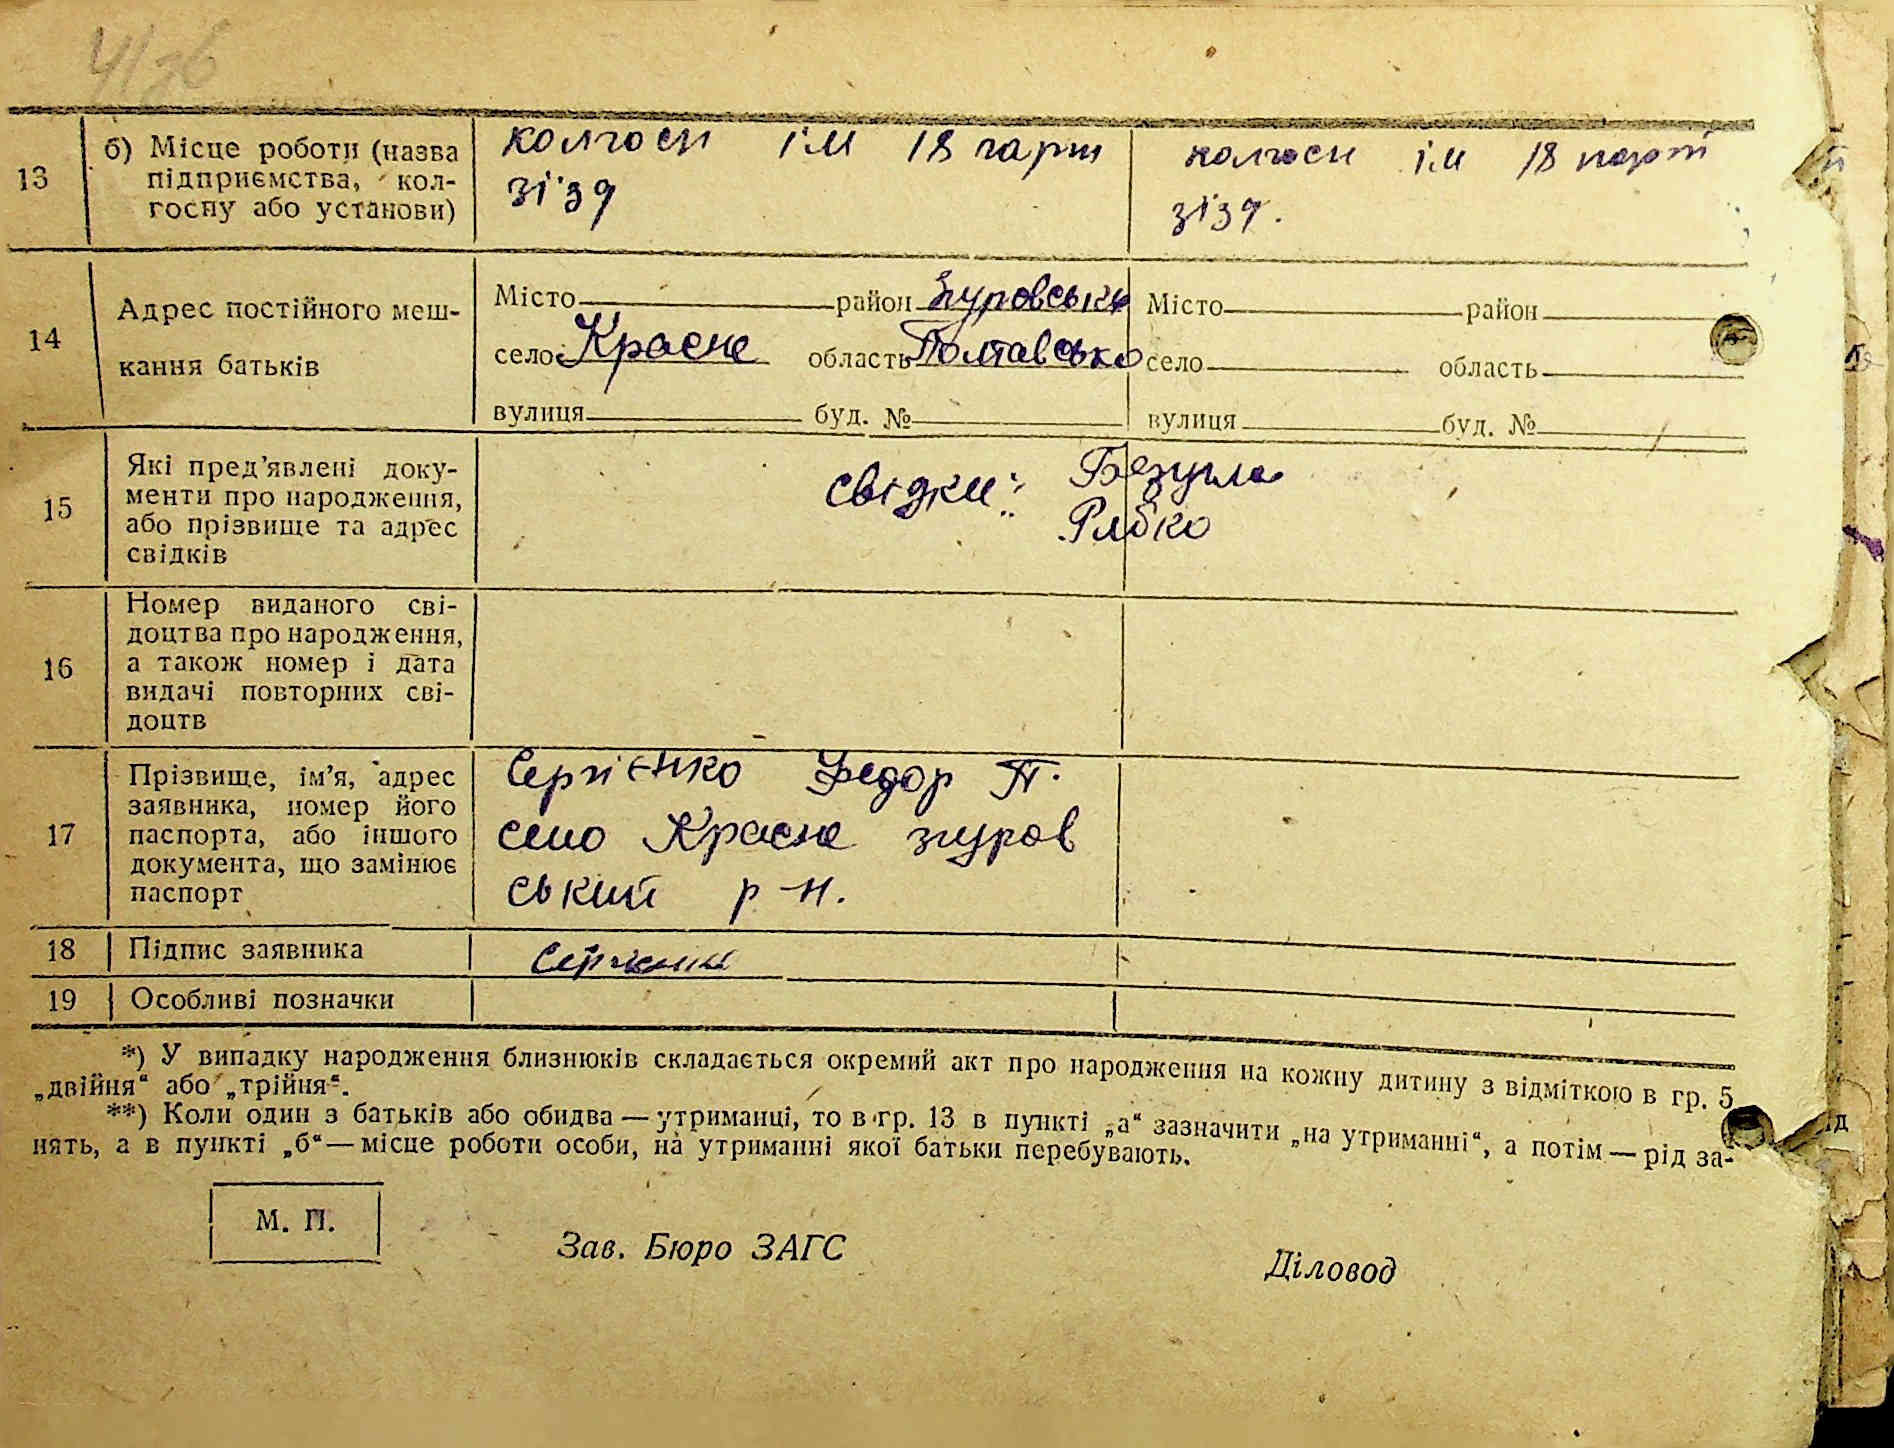 13
б) Місце роботи (назва
підприємства, кол-
госпу або установи)
колгосп ім 18 парт
зізд
колгосп ім 18 парт
зізд.
14
Адрес постійного меш-
кання батьків
Місто район Згуровськи
село Красне область Полтавсько
вулиця буд. №
Місто район
село область
вулиця буд. №
15
Які пред'явлені доку-
менти про народження,
або прізвище та адрес
свідків
свідки: Безугла
Рябко
16
Номер виданого сві-
доцтва про народження,
а також номер і дата
видачі повторних сві-
доцтв
17
Прізвище, ім'я, адрес
заявника, номер його
паспорта, або іншого
документа, що замінює
паспорт
Сергієнко Федор П.
село Красне згуров
ський р-н.
18
Підпис заявника
19
Особливі позначки
*) У випадку народження близнюків складається окремий акт про народження на кожну дитину з відміткою в гр. 5
„двійня“ або „трійня“.
**) Коли один з батьків або обидва — утриманці, то в гр. 13 в пункті „а“ зазначити „на утриманні“, а потім — рід за-
нять, а в пункті „б“ — місце роботи особи, на утриманні якої батьки перебувають.
М. П.
Зав. Бюро ЗАГС
Діловод